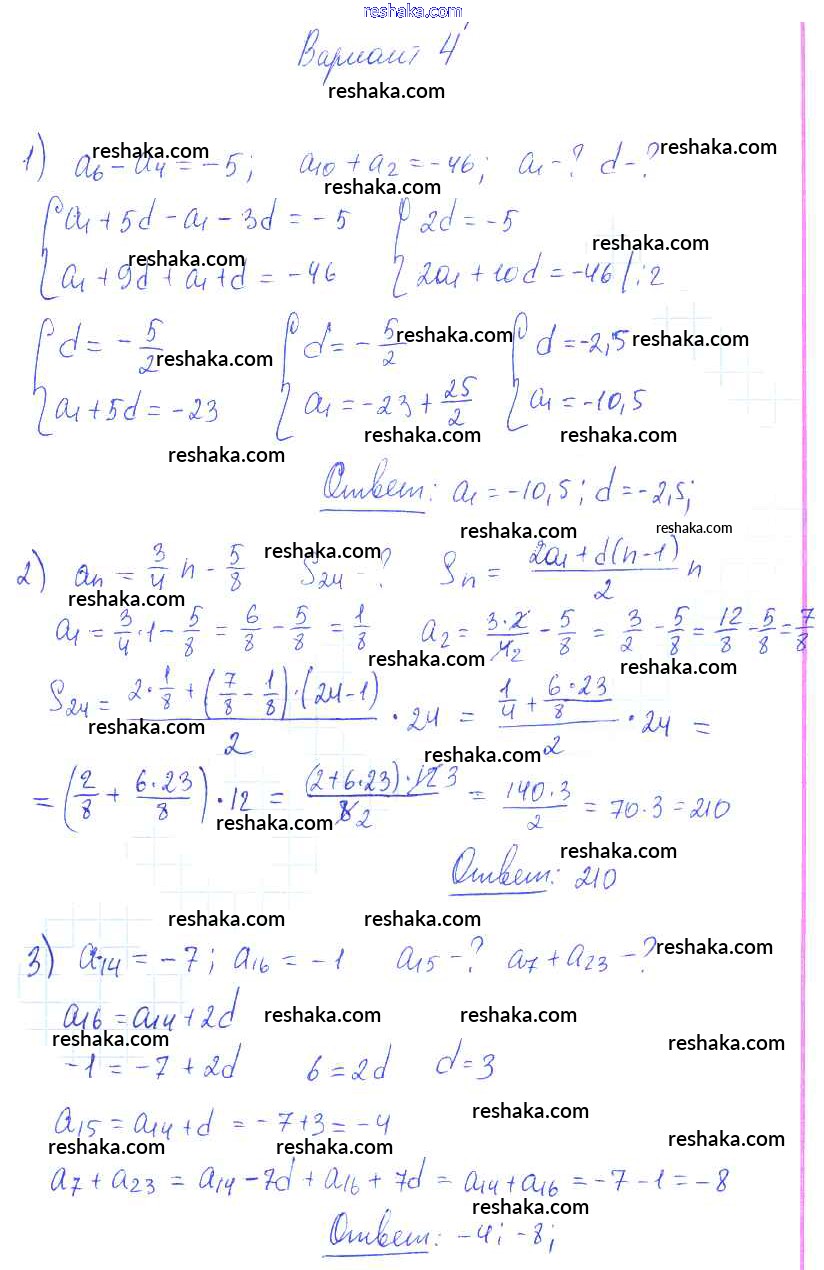 reshaka.com
Вариант 4
reshaka.com
1) a₆ - a₄ = -5; a₁₀ + a₂ = -46; a₁ - ? d - ?
reshaka.com reshaka.com reshaka.com
{ a₁ + 5d - a₁ - 3d = -5 { 2d = -5
reshaka.com reshaka.com
a₁ + 9d + a₁ + d = -46 2a₁ + 10d = -46 |:2
{ d = -5/2 { d = -5/2 { d = -2,5
reshaka.com reshaka.com reshaka.com
a₁ + 5d = -23 a₁ = -23 + 25/2 a₁ = -10,5
reshaka.com reshaka.com reshaka.com
Ответ: a₁ = -10,5; d = -2,5;
reshaka.com reshaka.com
2) aₙ = 3/4 n - 5/8 S₂₄ - ? Sₙ = (2a₁ + d(n-1))/2 n
reshaka.com reshaka.com
a₁ = 3/4 · 1 - 5/8 = 6/8 - 5/8 = 1/8 a₂ = (3·2)/(4 2) - 5/8 = 3/2 - 5/8 = 12/8 - 5/8 = 7/8
reshaka.com reshaka.com
S₂₄ = (2·1/8 + (7/8 - 1/8)·(24-1))/2 · 24 = (1/4 + (6·23)/8)/2 · 24 =
reshaka.com reshaka.com
= (2/8 + (6·23)/8) · 12 = ((2+6·23)·12 3)/(8 2) = (140·3)/2 = 70·3 = 210
reshaka.com reshaka.com
Ответ: 210
reshaka.com reshaka.com
3) a₁₄ = -7; a₁₆ = -1 a₁₅ - ? a₇ + a₂₃ - ?
reshaka.com
a₁₆ = a₁₄ + 2d
reshaka.com reshaka.com reshaka.com reshaka.com
-1 = -7 + 2d 6 = 2d d = 3
reshaka.com
a₁₅ = a₁₄ + d = -7 + 3 = -4
reshaka.com reshaka.com reshaka.com
a₇ + a₂₃ = a₁₄ - 7d + a₁₆ + 7d = a₁₄ + a₁₆ = -7 - 1 = -8
reshaka.com
Ответ: -4; -8;